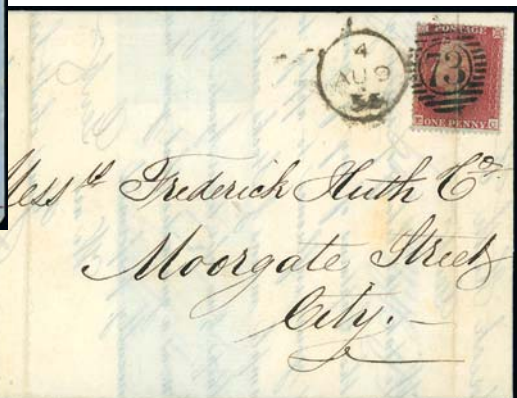 POSTAGE
4
AU 9
73
ONE PENNY
Mess rs Frederick Huth Co.
Moorgate Street
City. -